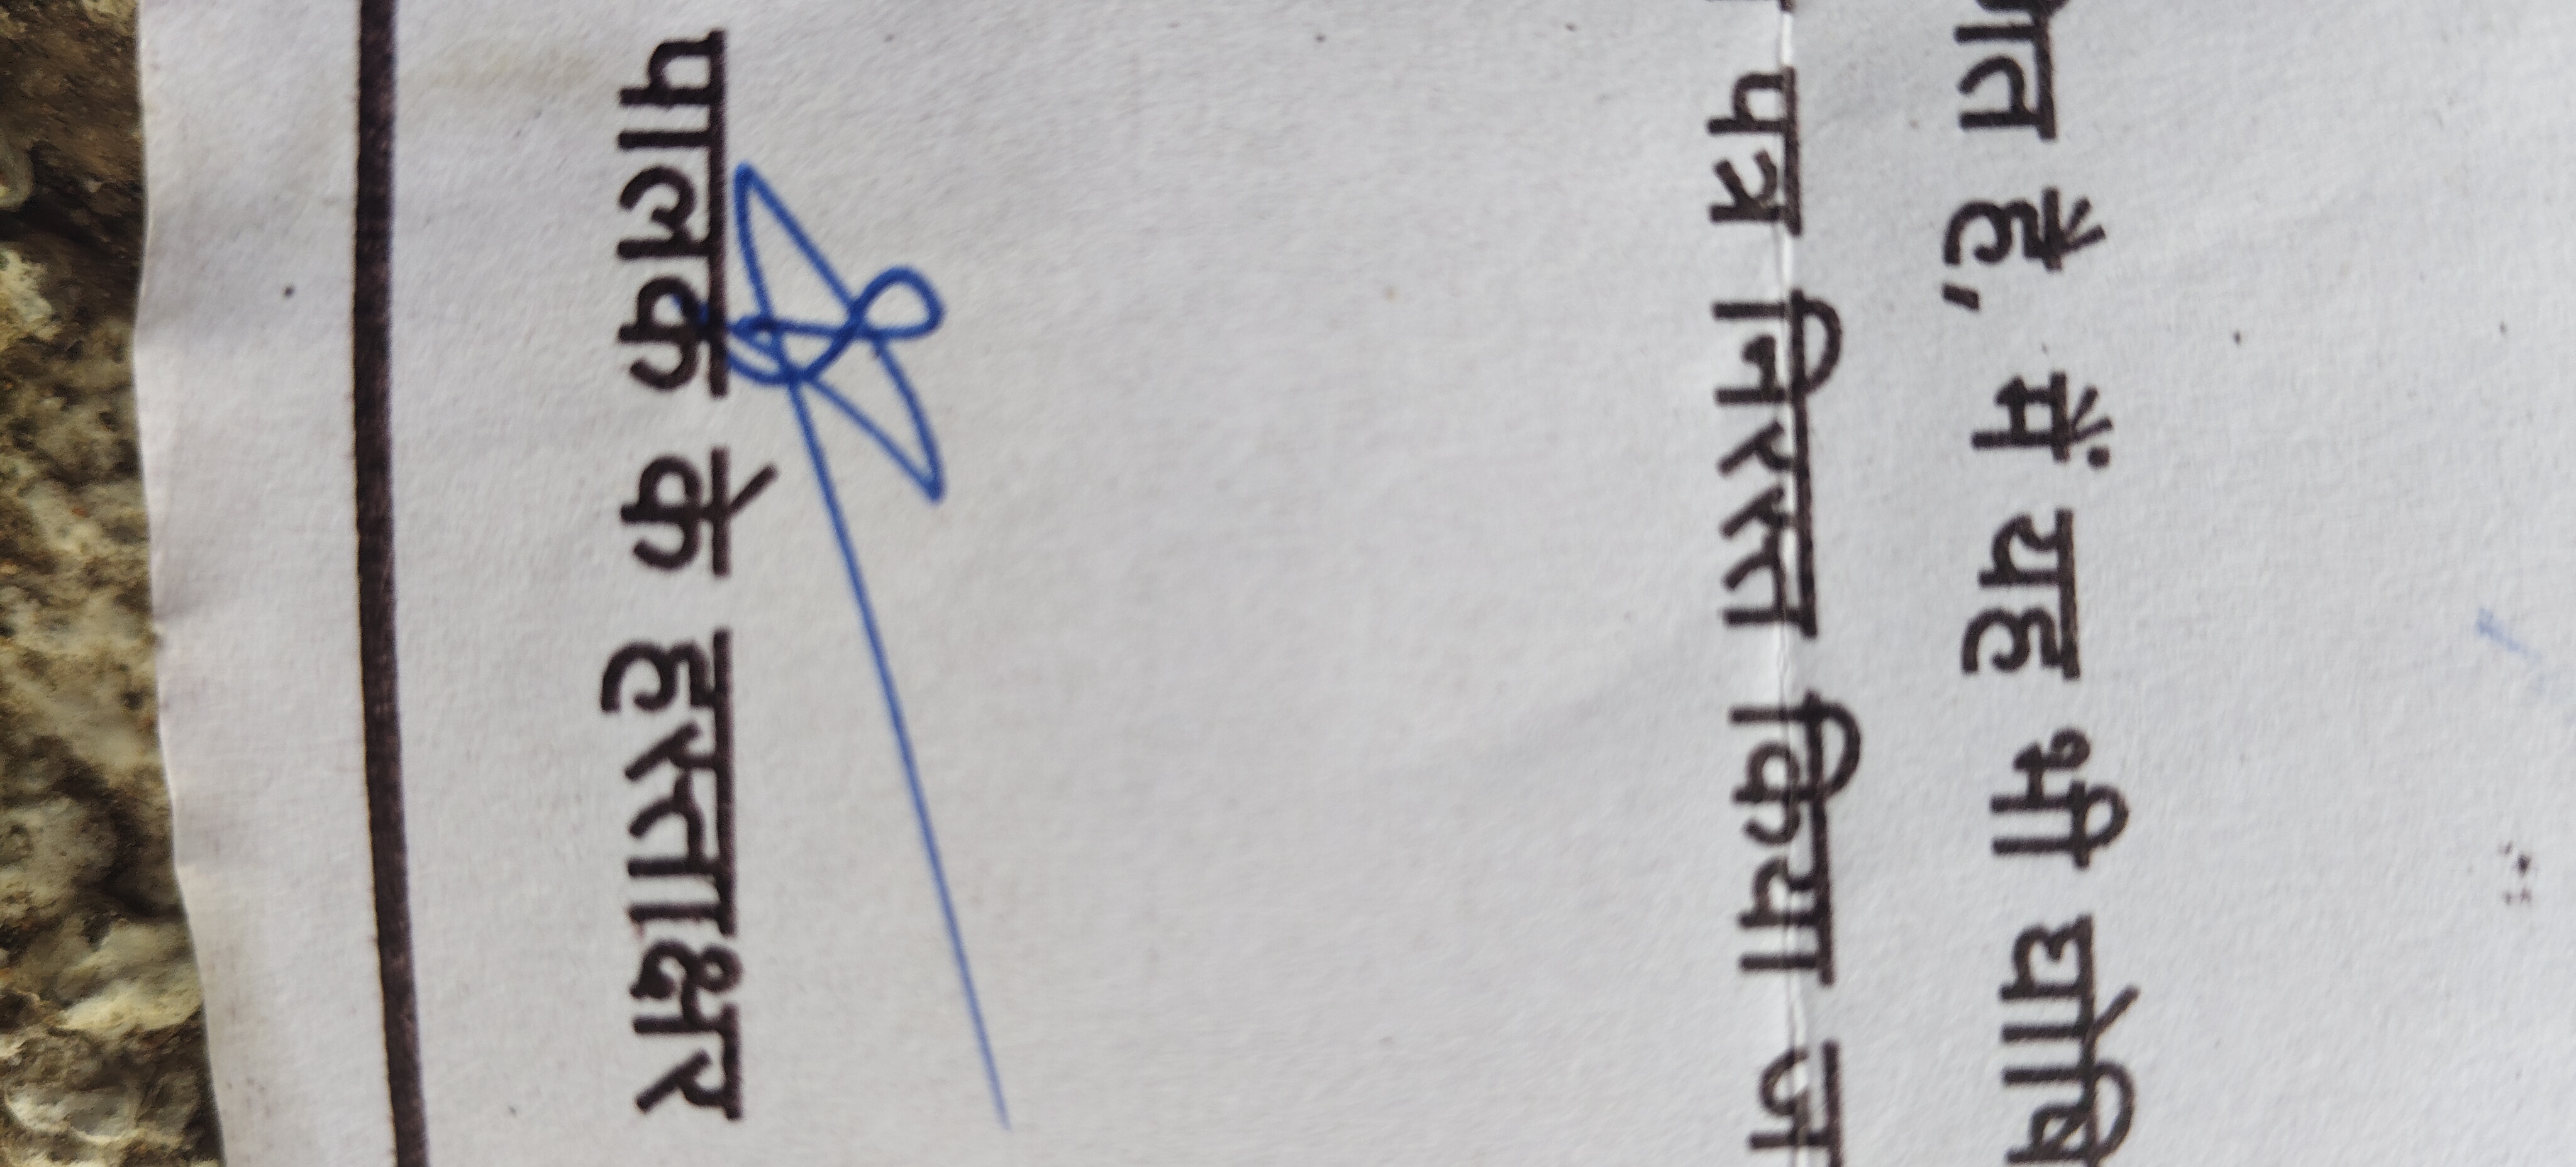 गत है, मैं यह भी घोषि
पत्र निरस्त किया ज
पालक के हस्ताक्षर